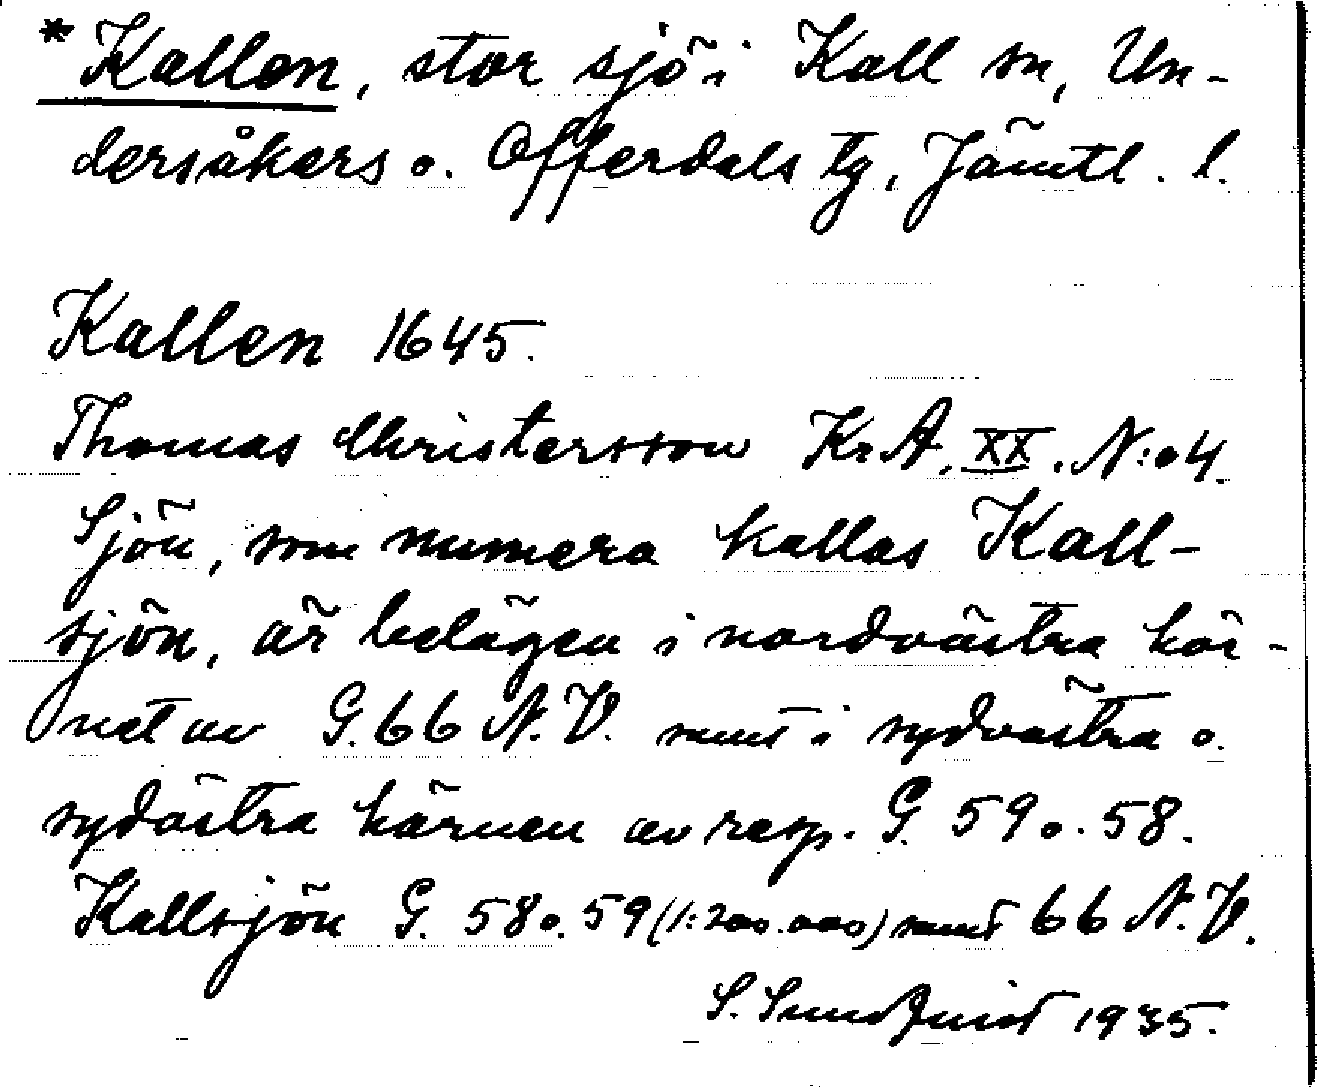 * Kallen, stor sjö i Kall sn, Un-
dersåkers o. Offerdals tg, Jämtl. l.
Kallen 1645.
Thomas Christersson Kr. A. XX. N:o 4.
Sjön, som numera kallas Kall-
sjön, är belägen i nordvästra hör-
net av G. 66 N.V. samt i sydvästra o.
sydöstra hörnen av resp. G. 59 o. 58.
Kallsjön G. 58 o. 59 (1:200.000) samt 66 N.V.
S. Sundquist 1935.